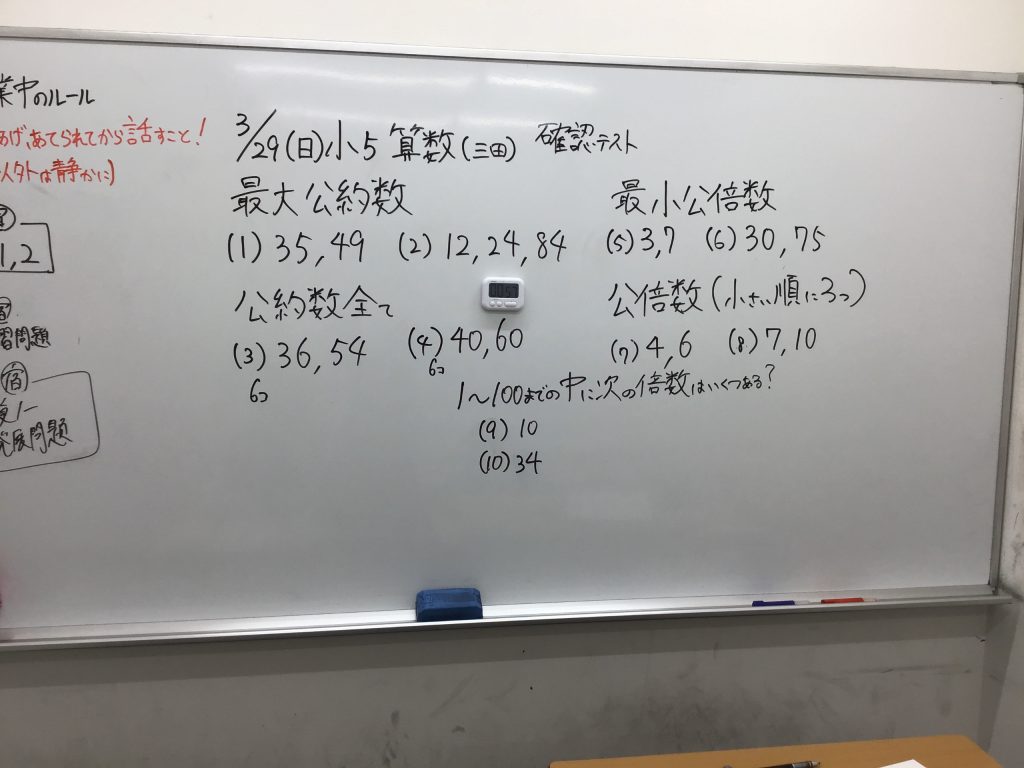 業中のルール
あげ、あてられてから話すこと！
は静かに)
1,2
習問題
宿
発展問題
3/29(日)小5 算数(三田) 確認テスト
最大公約数
(1) 35,49 (2) 12,24,84
公約数全て
(3) 36,54 (4) 40,60
6コ 6コ
最小公倍数
(5) 3,7 (6) 30,75
公倍数(小さい順に3つ)
(7) 4,6 (8) 7,10
1〜100までの中に次の倍数はいくつある?
(9) 10
(10) 34